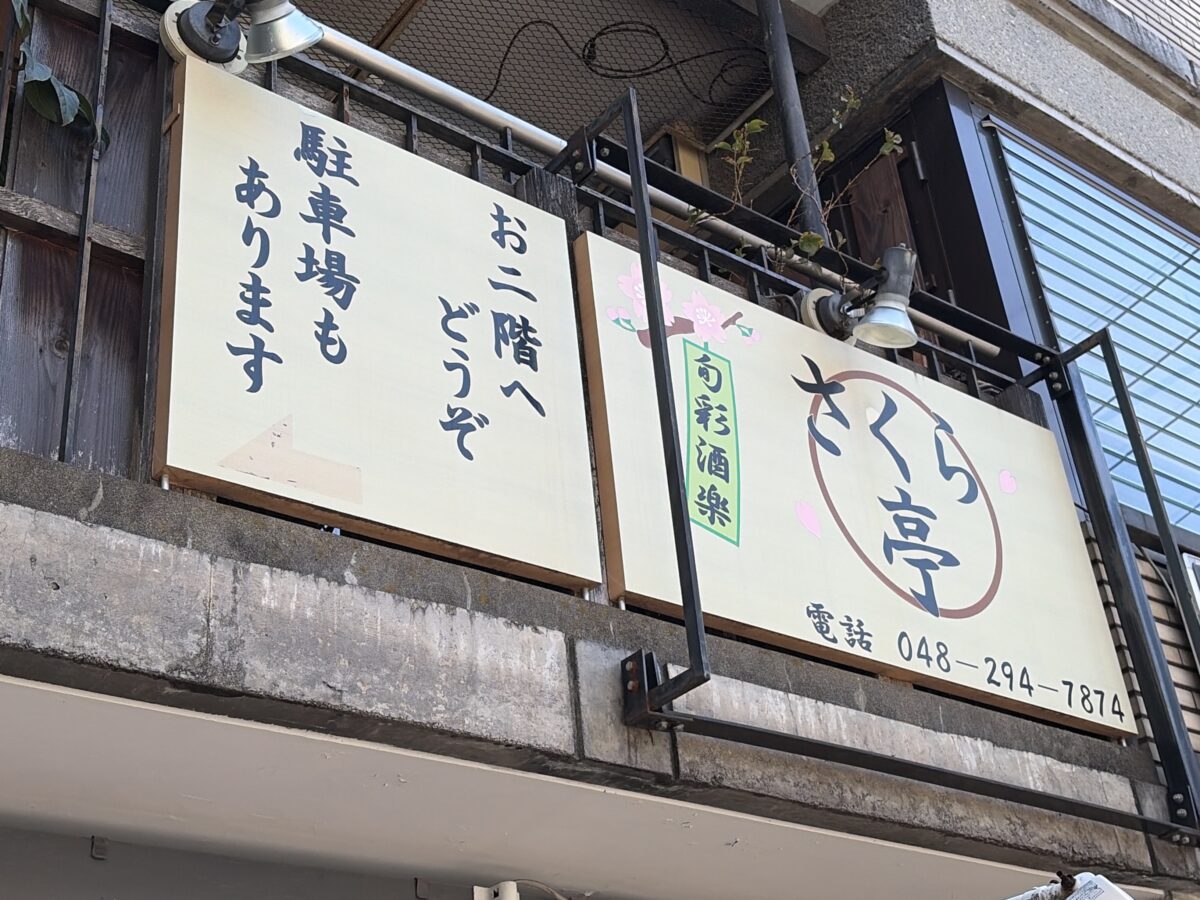 お二階へ
どうぞ
駐車場も
あります
旬彩酒楽
さくら
亭
電話 048-294-7874